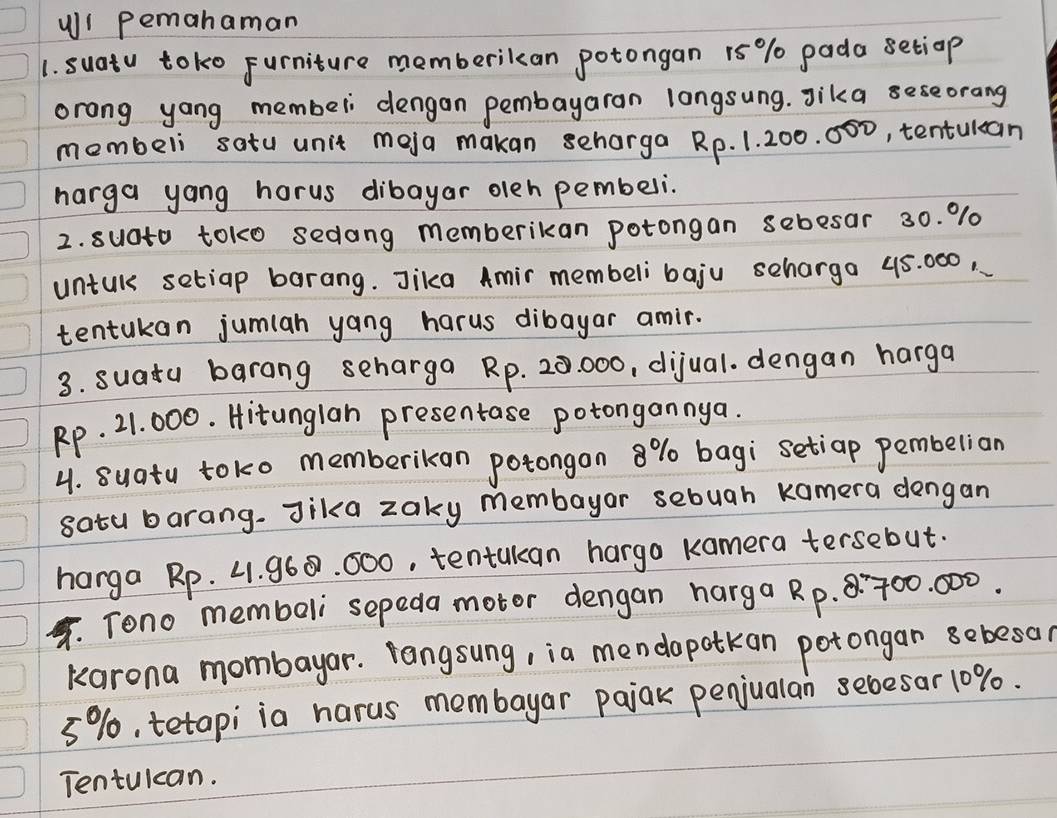 Uji pemahaman
1. suatu toko Furniture memberikan potongan 15% pada setiap
orang yang membeli dengan pembayaran langsung. Jika seseorang
membeli satu unit meja makan seharga Rp. 1.200.000, tentukan
harga yang harus dibayar oleh pembeli.
2. suatu toko sedang memberikan potongan sebesar 30.%
untuk setiap barang. Jika Amir membeli baju seharga 45.000,
tentukan jumlah yang harus dibayar amir.
3. suatu barang seharga Rp. 28.000, dijual. dengan harga
Rp. 21.000. Hitunglah presentase potongannya.
4. suatu toko memberikan potongan 8% bagi setiap pembelian
satu barang. Jika zaky membayar sebuah kamera dengan
harga Rp. 4.968.000, tentukan harga kamera tersebut.
5. Tono membeli sepeda motor dengan harga Rp. 8.700.000.
Karena mombayar. langsung, ia mendapatkan potongan sebesar
5%, tetapi ia harus membayar pajak penjualan sebesar 10%.
Tentukan.